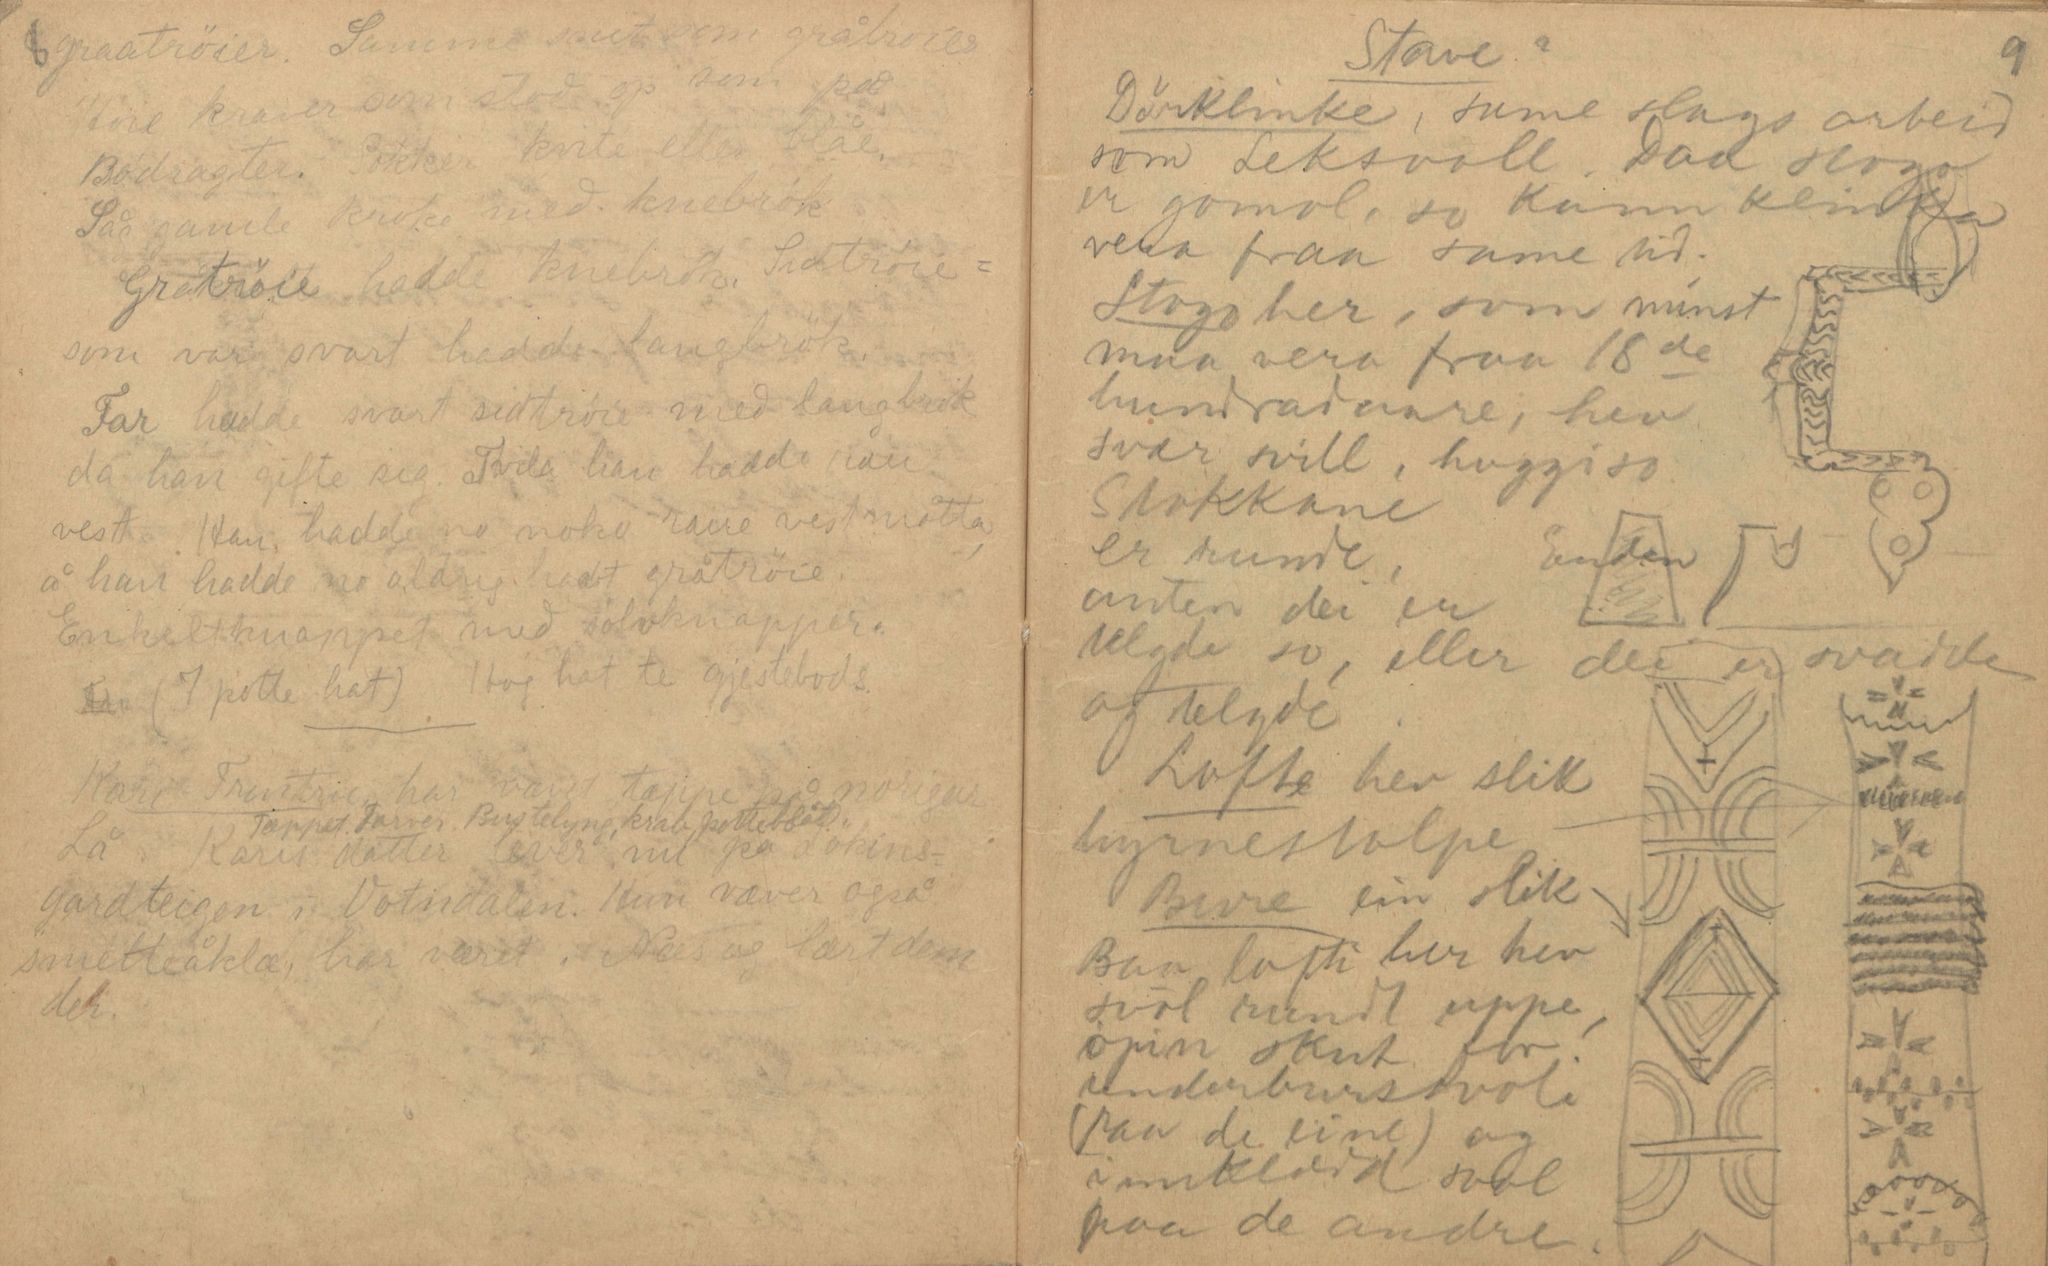 8
graatröier. Samme snit som gråtroier
som stod op som på
Bødragter. Sokker kvite eller blåe.
Såg gamle med knebrök
Gråtröie hadde knebrök. Sidtröie=
som var svart hadde langbrök.
Far hadde svart sidtröie med langbrök
da han gifte seg. Trula han hadde rau
vest. Han hadde no noko raue vest måtta,
å han hadde no aldrig hadt gråtröie.
Enkeltknappet med sölvknapper.
(7 potte hat) Hog hat te gjestebods.
Kari har tæppe på norigar
Tæppet. Farver. Bustelyng, krab, potteblåt.
Lå. Karis datter lever nu på
gardteigen i Votndalen. Hun væver også
smetteåklæ, har været i Næs og lært dem
der.
Stave?
9
Dörklinke, same slags arbeid
som Leksvoll. Daa stogo
er gomol, so kann klinka
vera fraa same tid.
Stogo her, som minst
maa vera fraa 18de
hundradaare, hev
svær svill, huggi so
Stokkane
er runde, Enden
anten dei er
telgde so, eller dei er svadde
og telgde.
Lofte hev slik
hyrnestolpe
Bure ein slik
Baa lofti her hev
svol rundt uppe,
open skut for
underbursvoli
(paa de eine) og
innklædd svol
paa de andre.